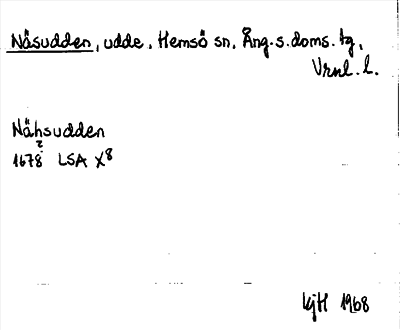 Näsudden, udde, Hemsö sn, Ång.s.doms.tg,
Vrnl. l.
Nähsudden
?
1678 LSA X8
KjH 1968